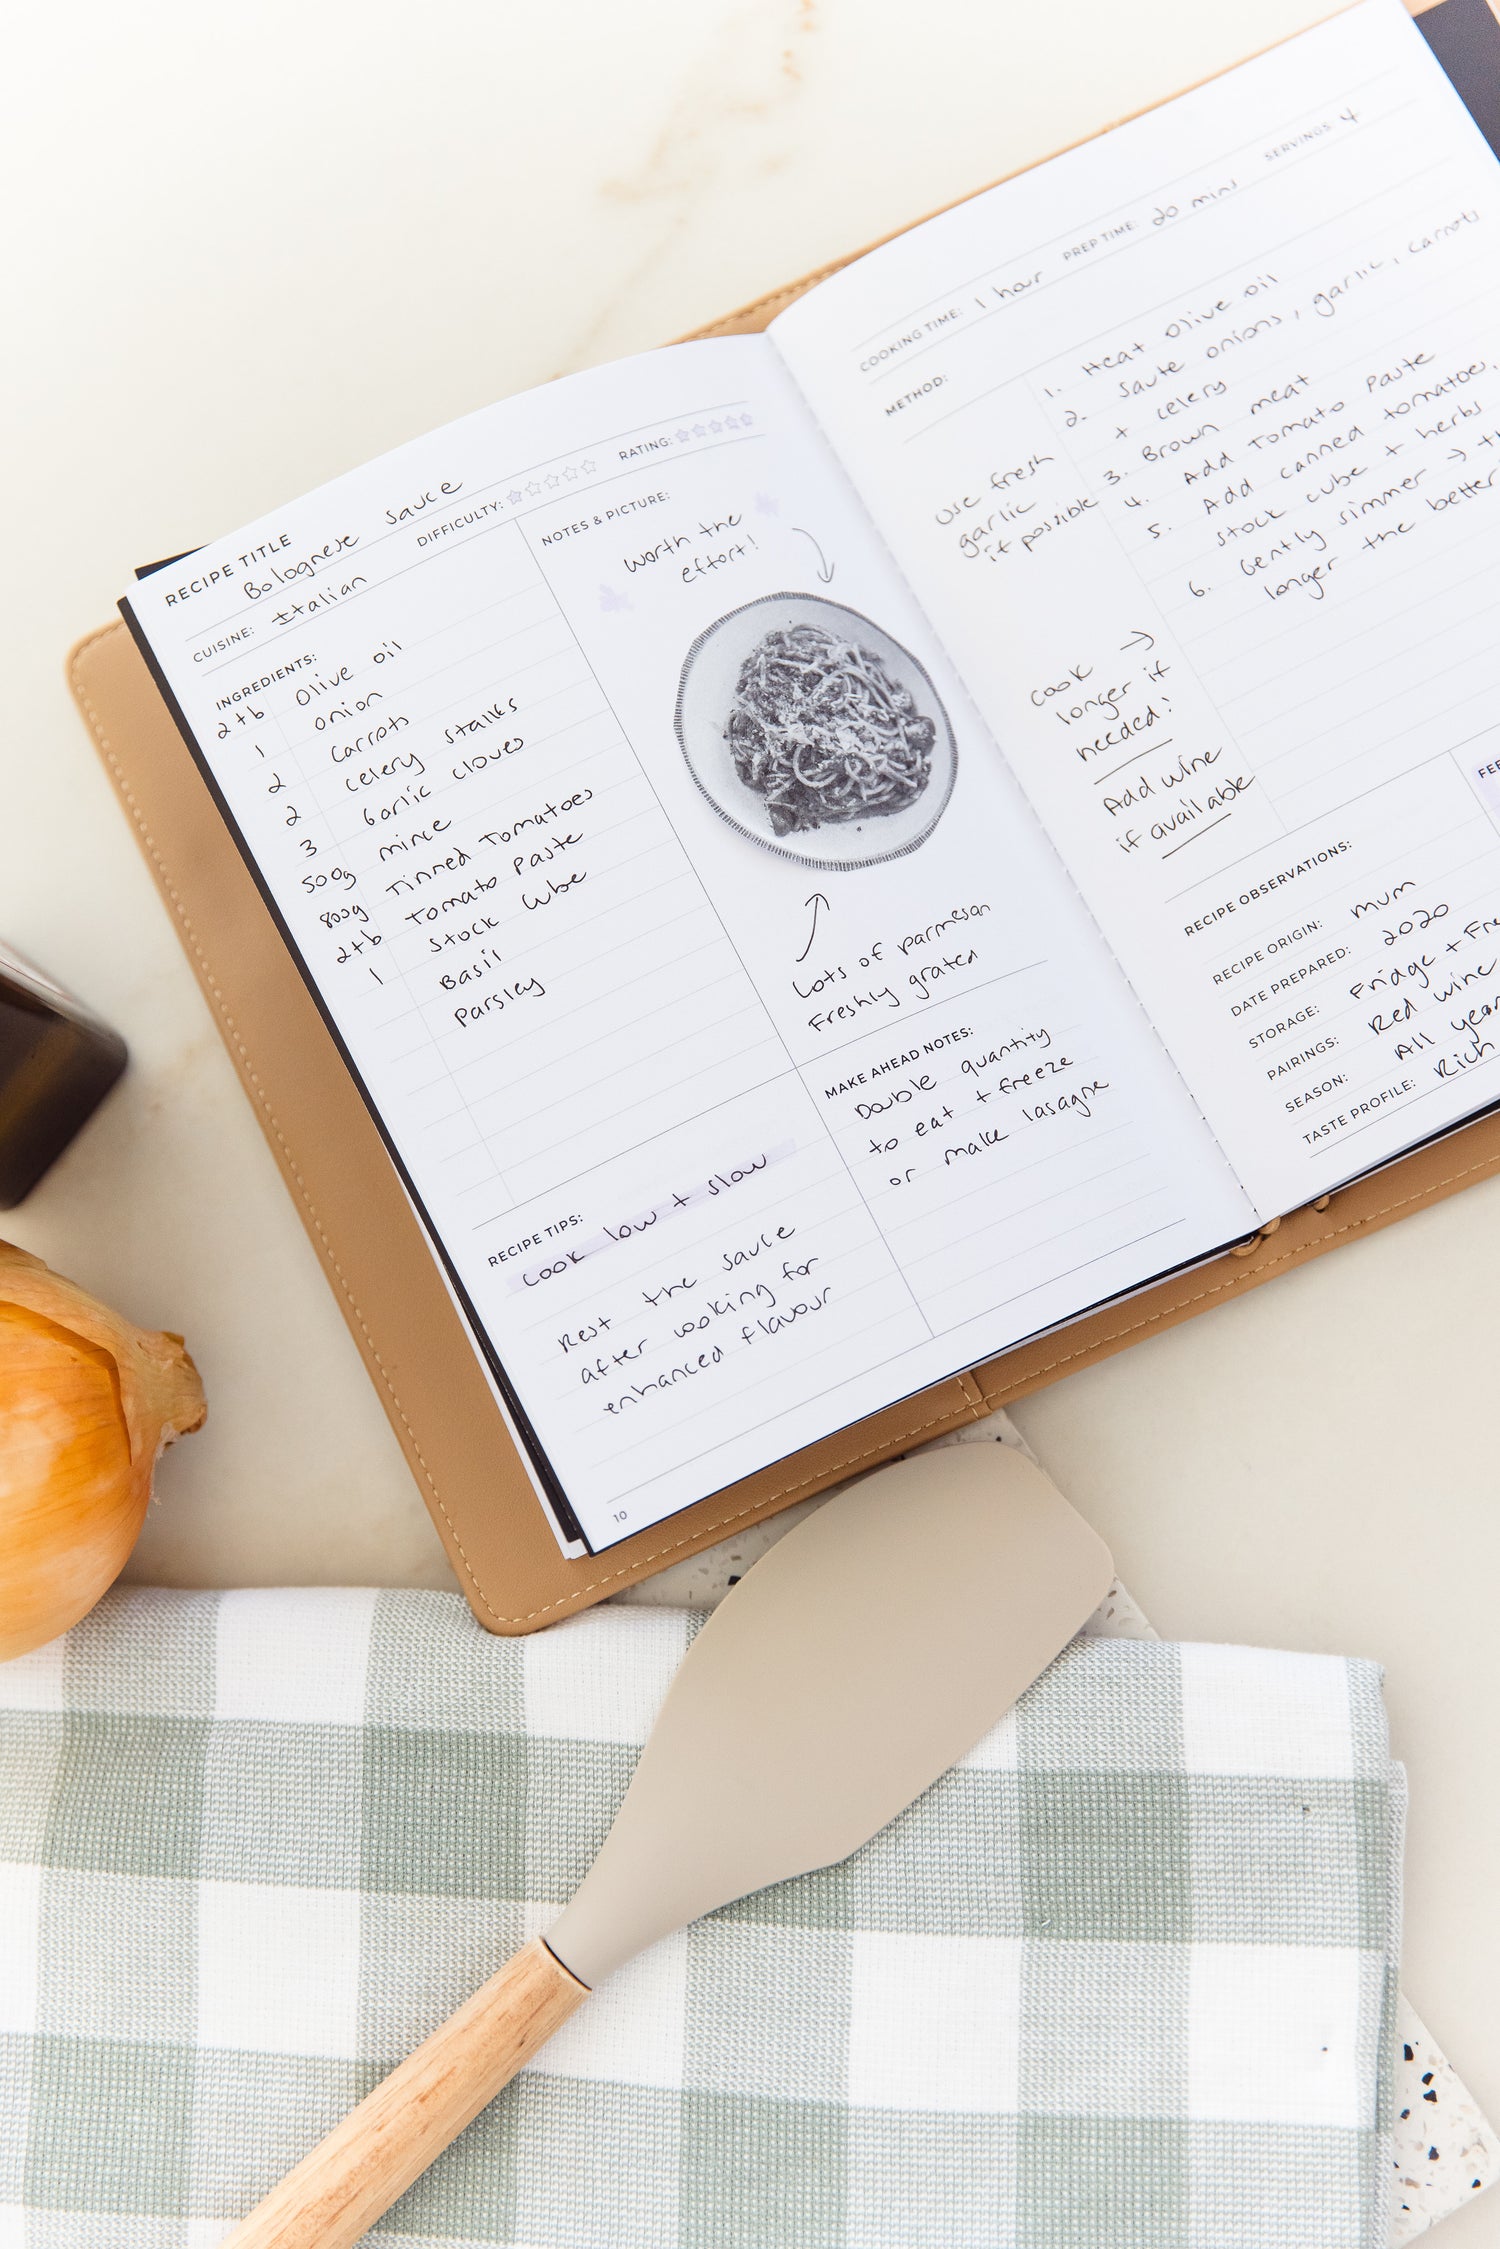 RECIPE TITLE
Bolognese sauce
CUISINE: Italian
DIFFICULTY:
RATING:
INGREDIENTS:
2tb Olive oil
1 onion
2 carrots
2 celery stalks
3 Garlic cloves
500g mince
800g Tinned Tomatoes
2tb Tomato Paste
1 Stock cube
Basil
Parsley
NOTES & PICTURE:
Worth the
effort!
Lots of parmesan
Freshly grated
RECIPE TIPS:
Cook low + slow
Rest the sauce
after cooking for
enhanced flavour
MAKE AHEAD NOTES:
Double quantity
to eat + freeze
or make lasagne
10
COOKING TIME: 1 hour PREP TIME: 20 mins SERVINGS: 4
METHOD:
1. Heat Olive oil
2. Saute onions, garlic, carrots
+ celery
3. Brown meat
4. Add Tomato Paste
5. Add canned tomatoes,
stock cube + herbs
6. Gently simmer →
longer the better
use fresh
garlic
if possible
Cook →
longer if
needed!
Add wine
if available
RECIPE OBSERVATIONS:
RECIPE ORIGIN: mum
DATE PREPARED: 2020
STORAGE: Fridge +
PAIRINGS: Red wine
SEASON: All
TASTE PROFILE: Rich